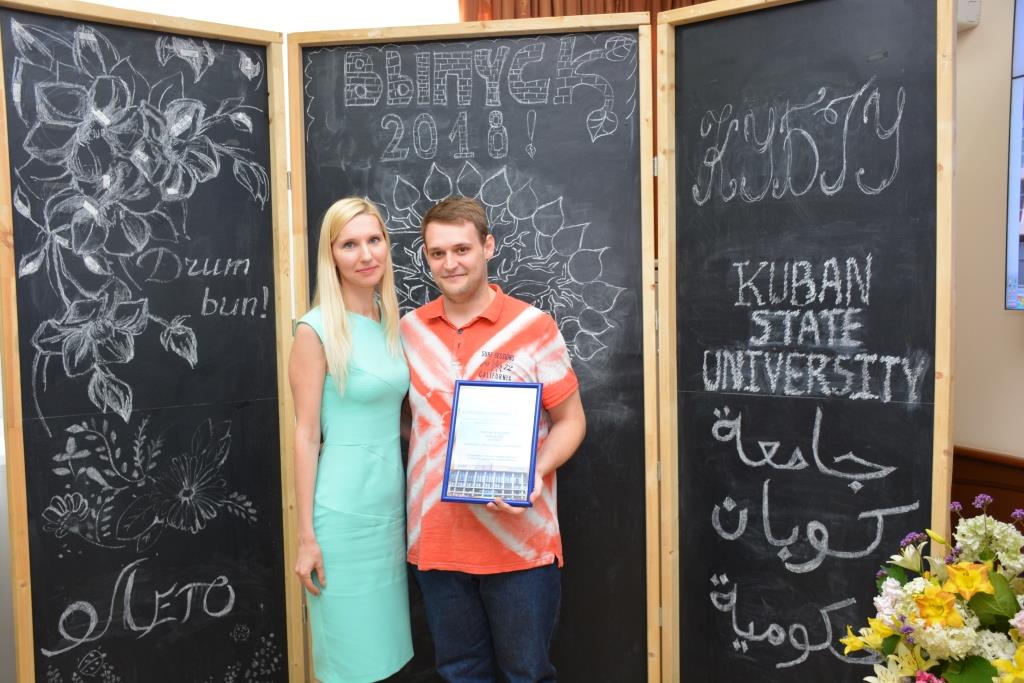 Drum
bun!
ЛЕТО
ВЫПУСК
2018!
SURF SESSIONS
CALIFORNIA
КУБГУ
KUBAN
STATE
UNIVERSITY
جامعة
كوبان
حكومية